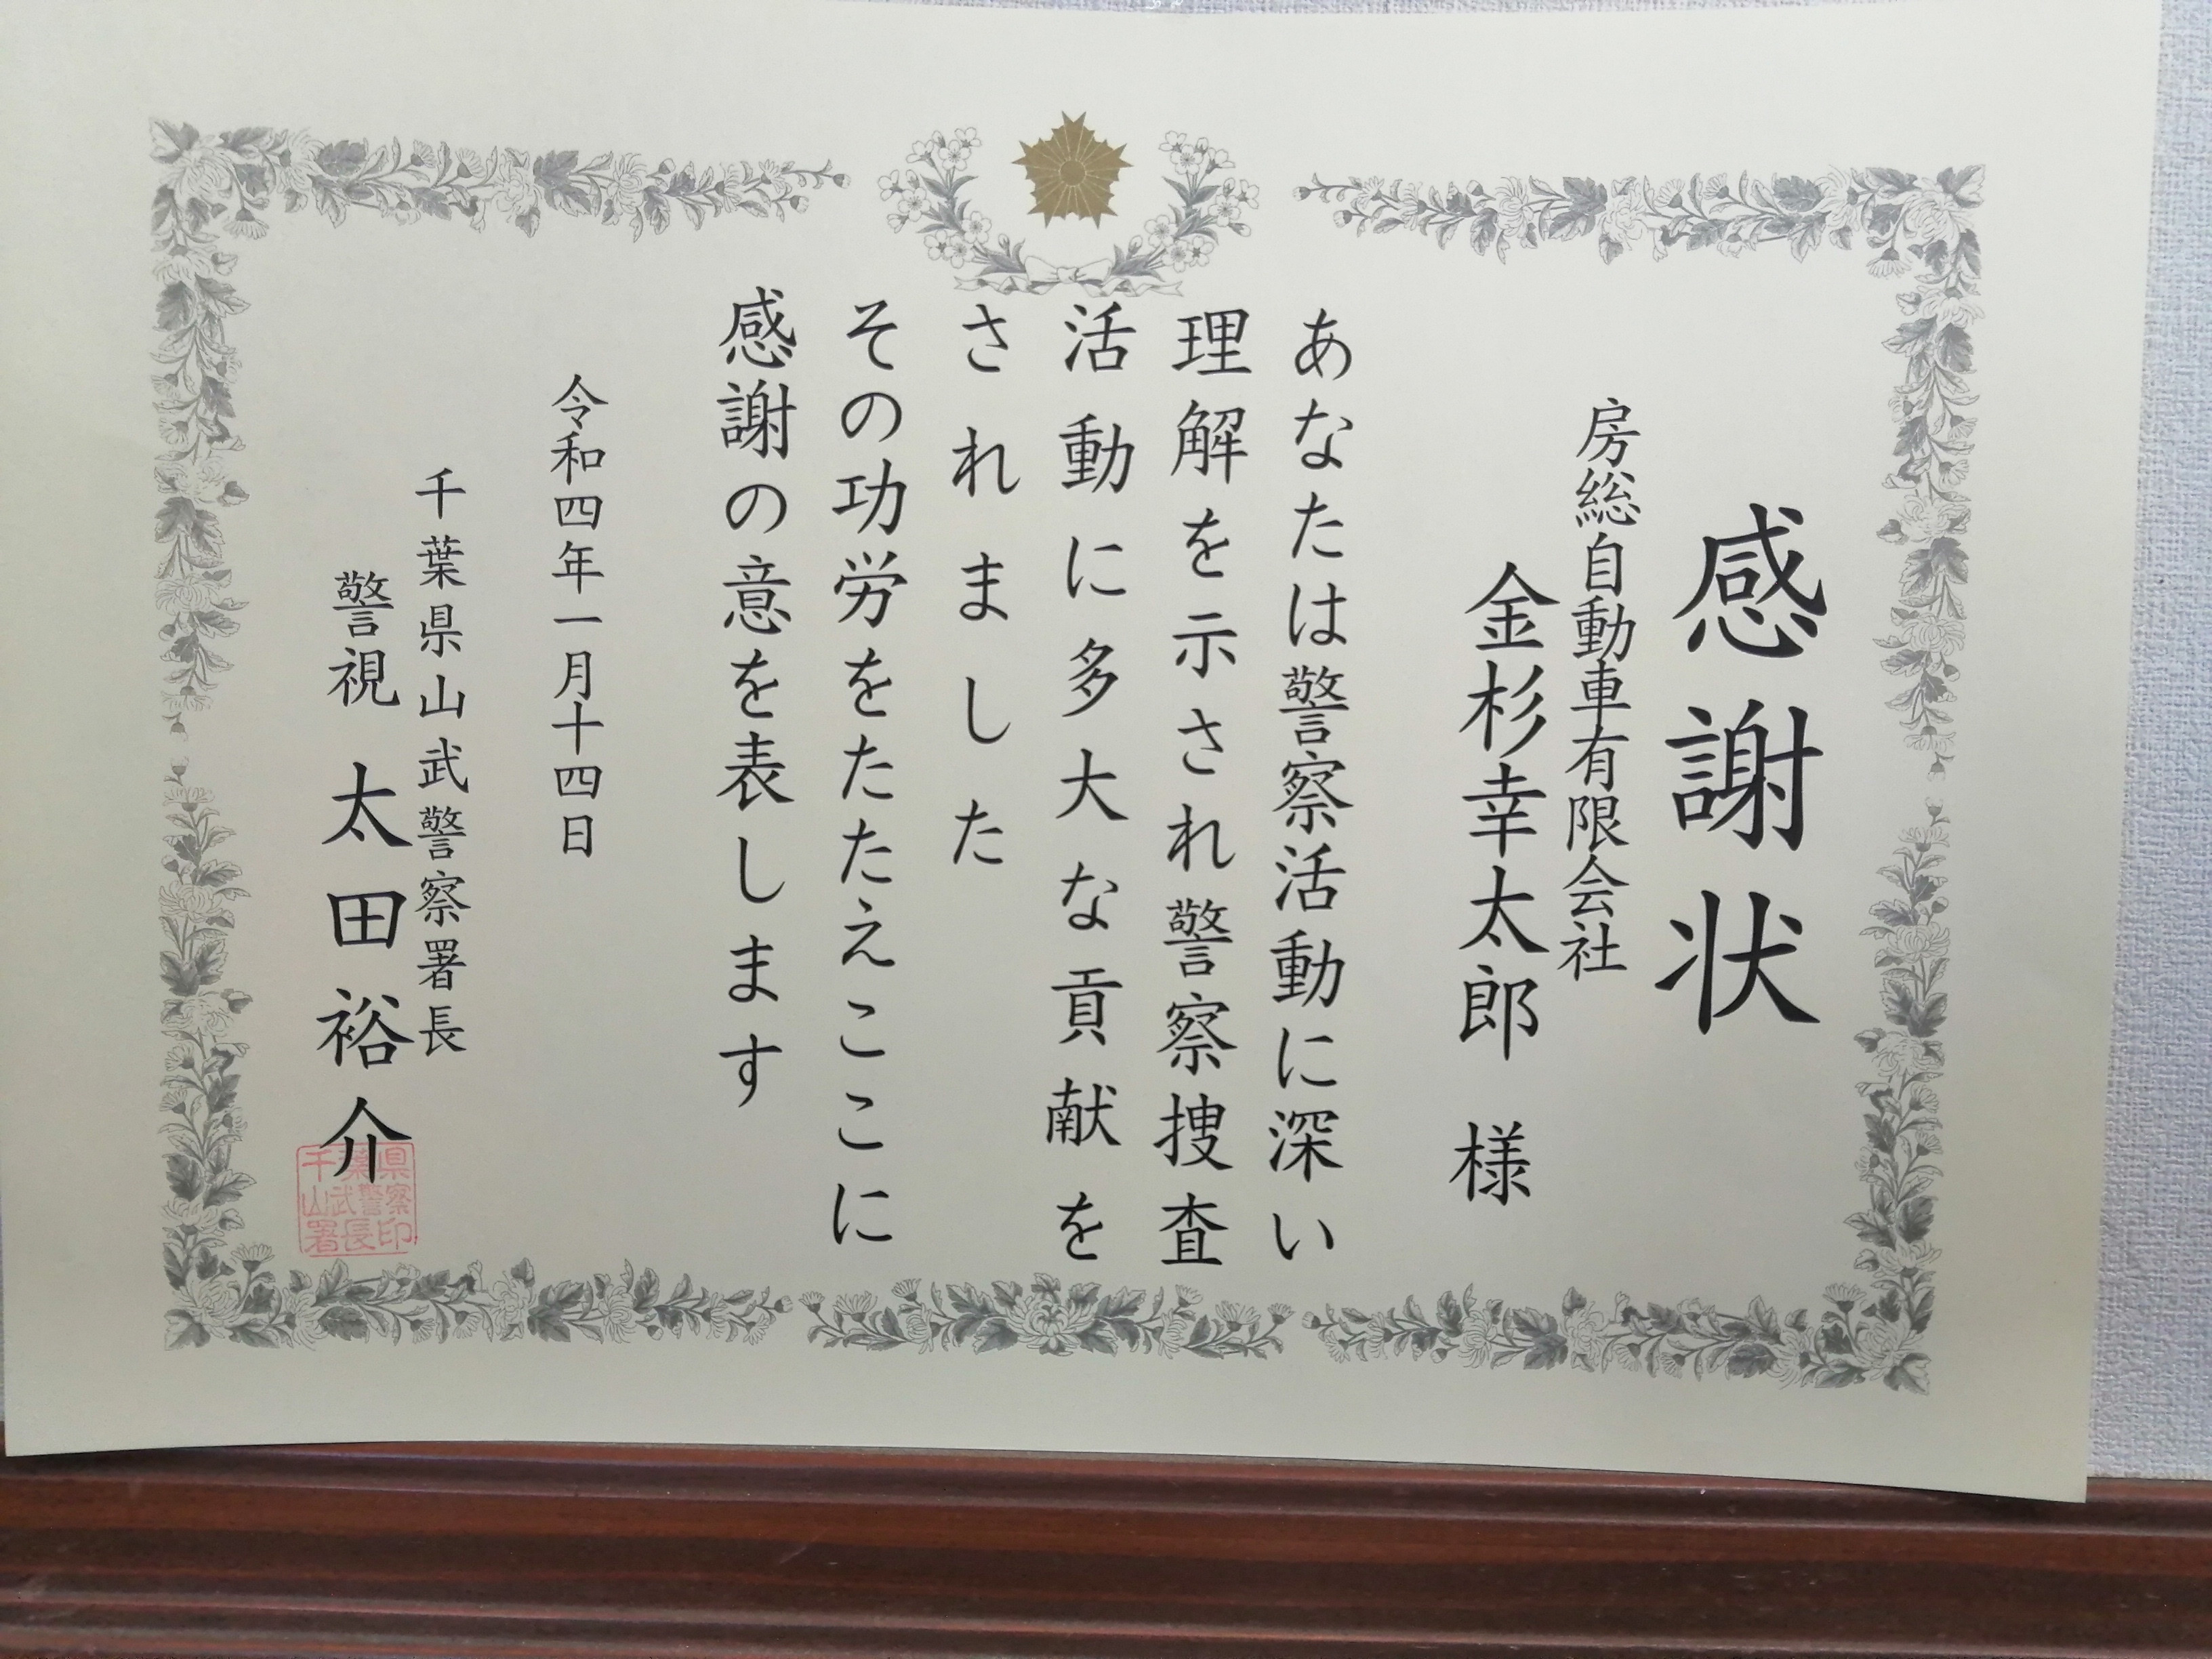 感謝状
房総自動車有限会社
金杉幸太郎 様
あなたは警察活動に深い
理解を示され警察捜査
活動に多大な貢献を
されました
その功労をたたえここに
感謝の意を表します
令和四年一月十四日
千葉県山武警察署長
警視 太田裕介
千葉県
山武警察
署長印